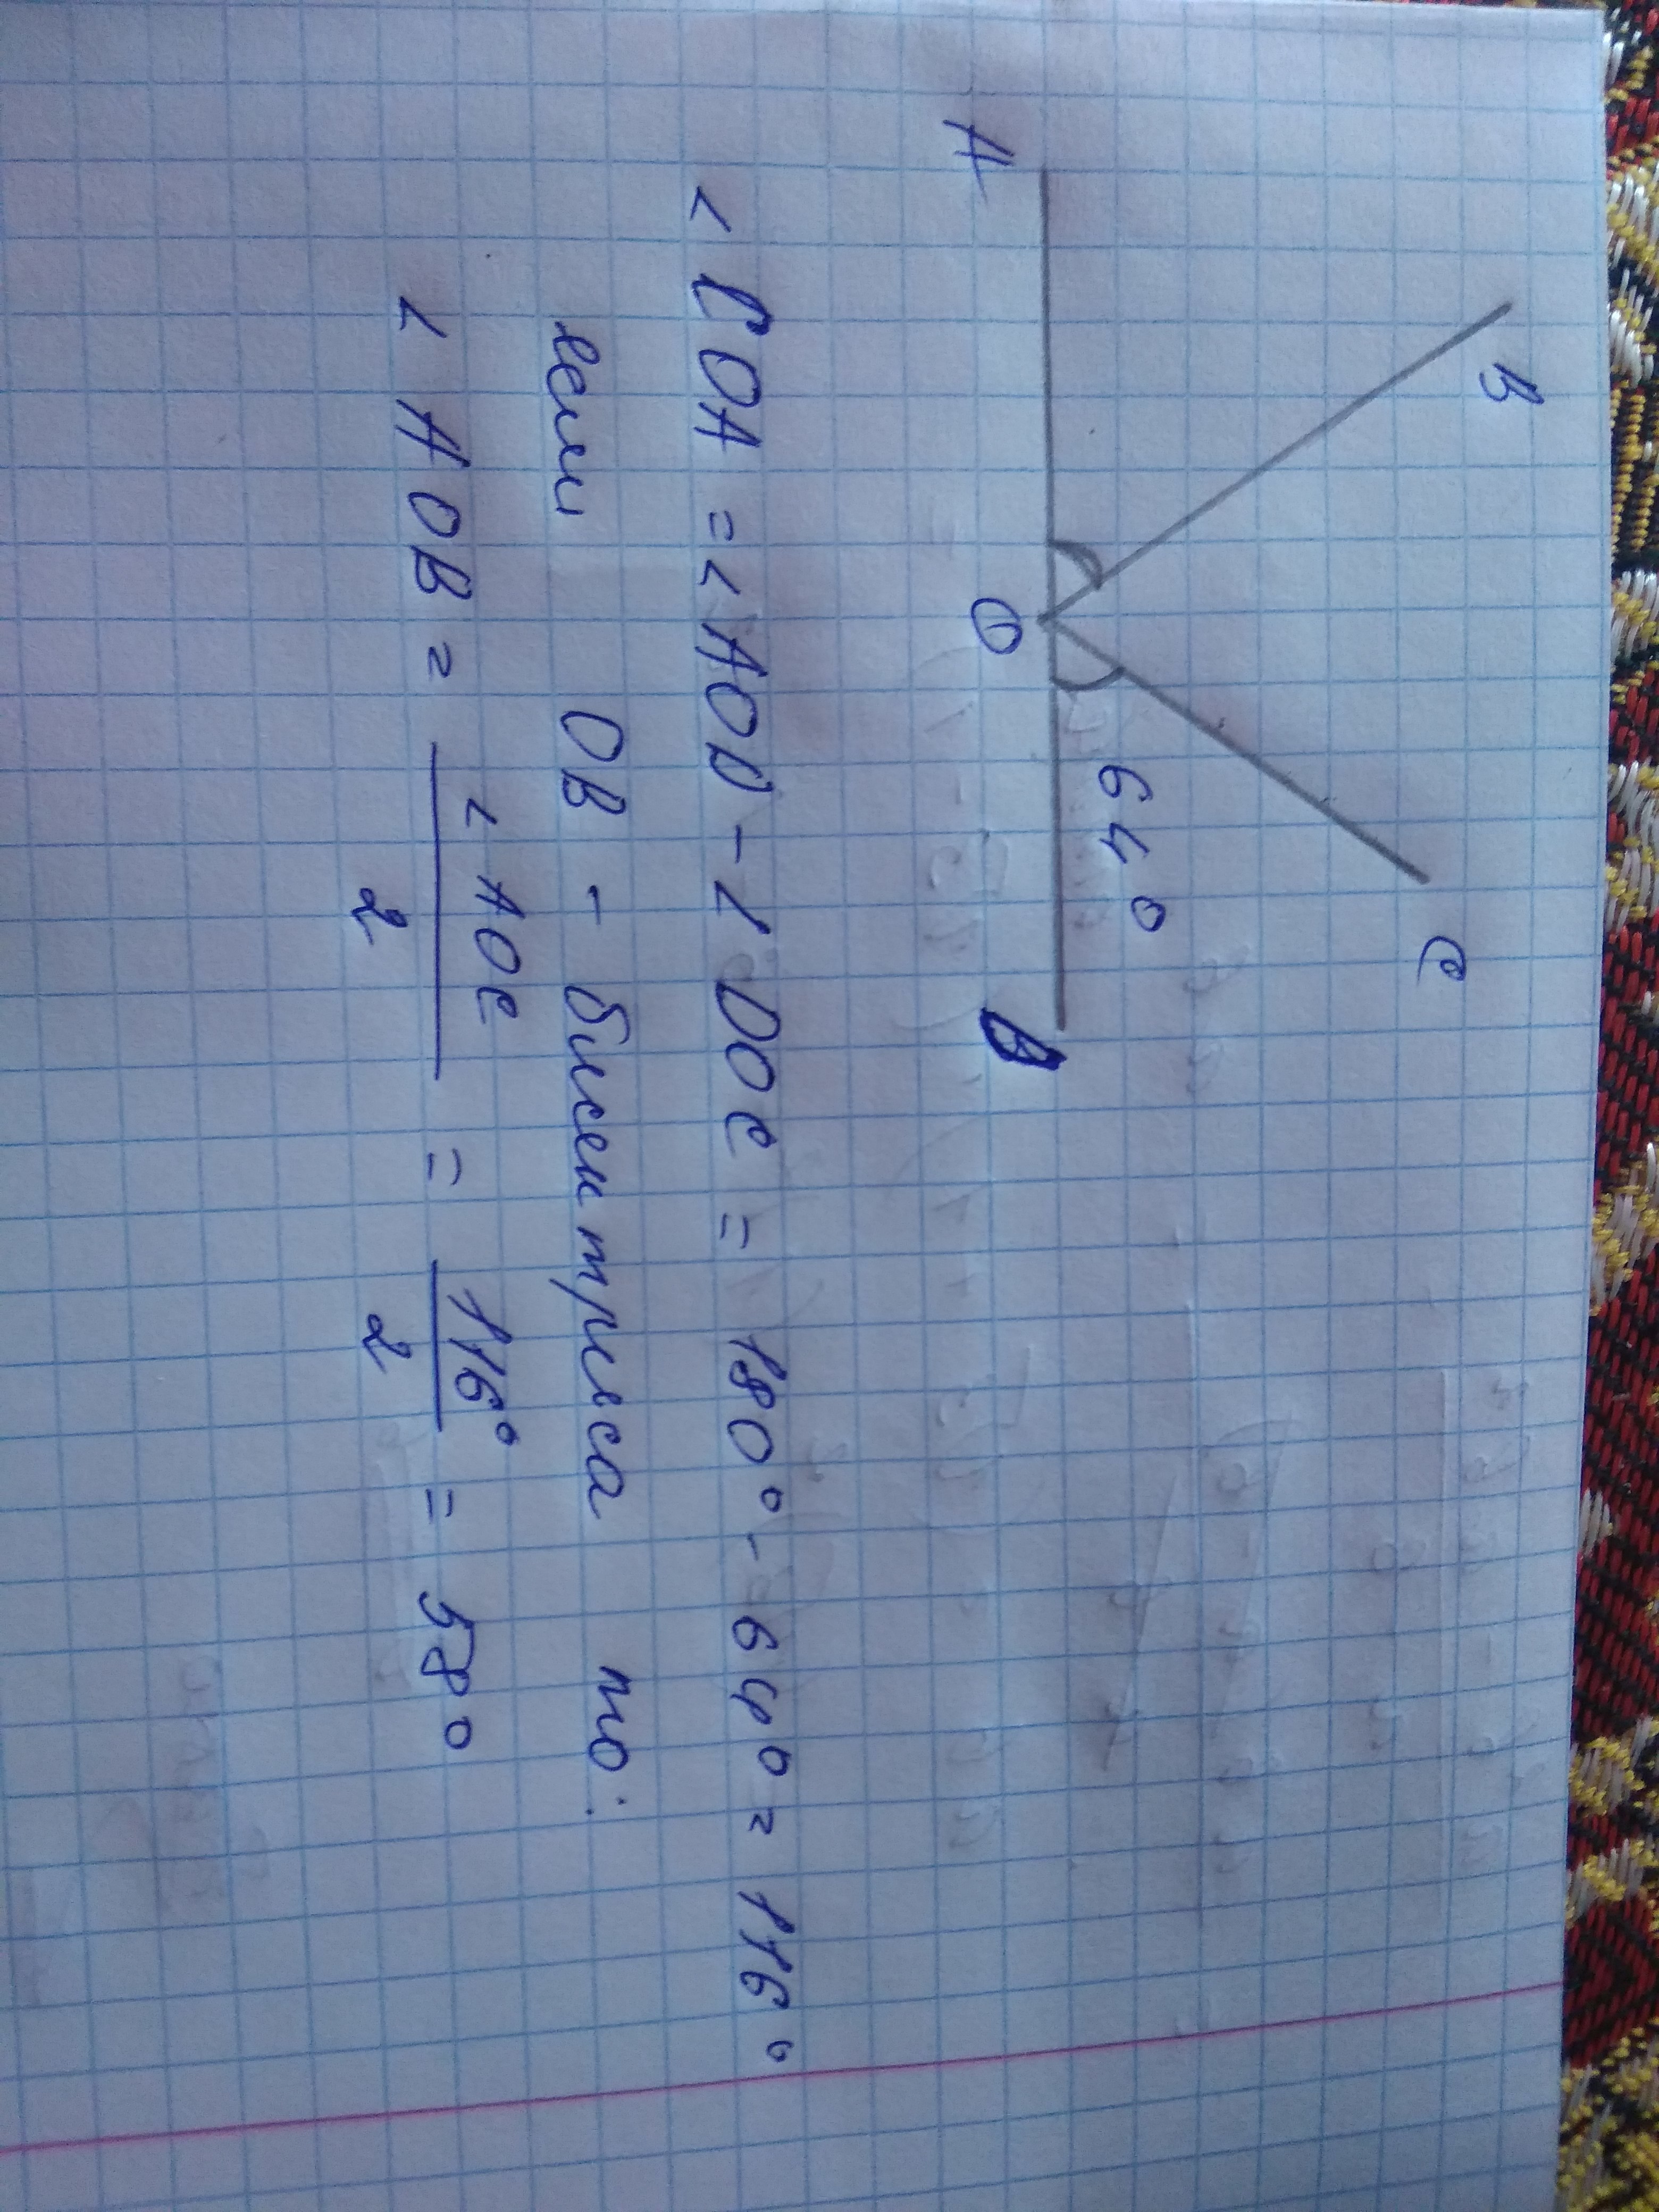 B
C
64°
A
O
D
∠COA = ∠AOD - ∠DOC = 180° - 64° = 116°
если OB - биссектриса то:
∠AOB = ∠AOC / 2 = 116° / 2 = 58°